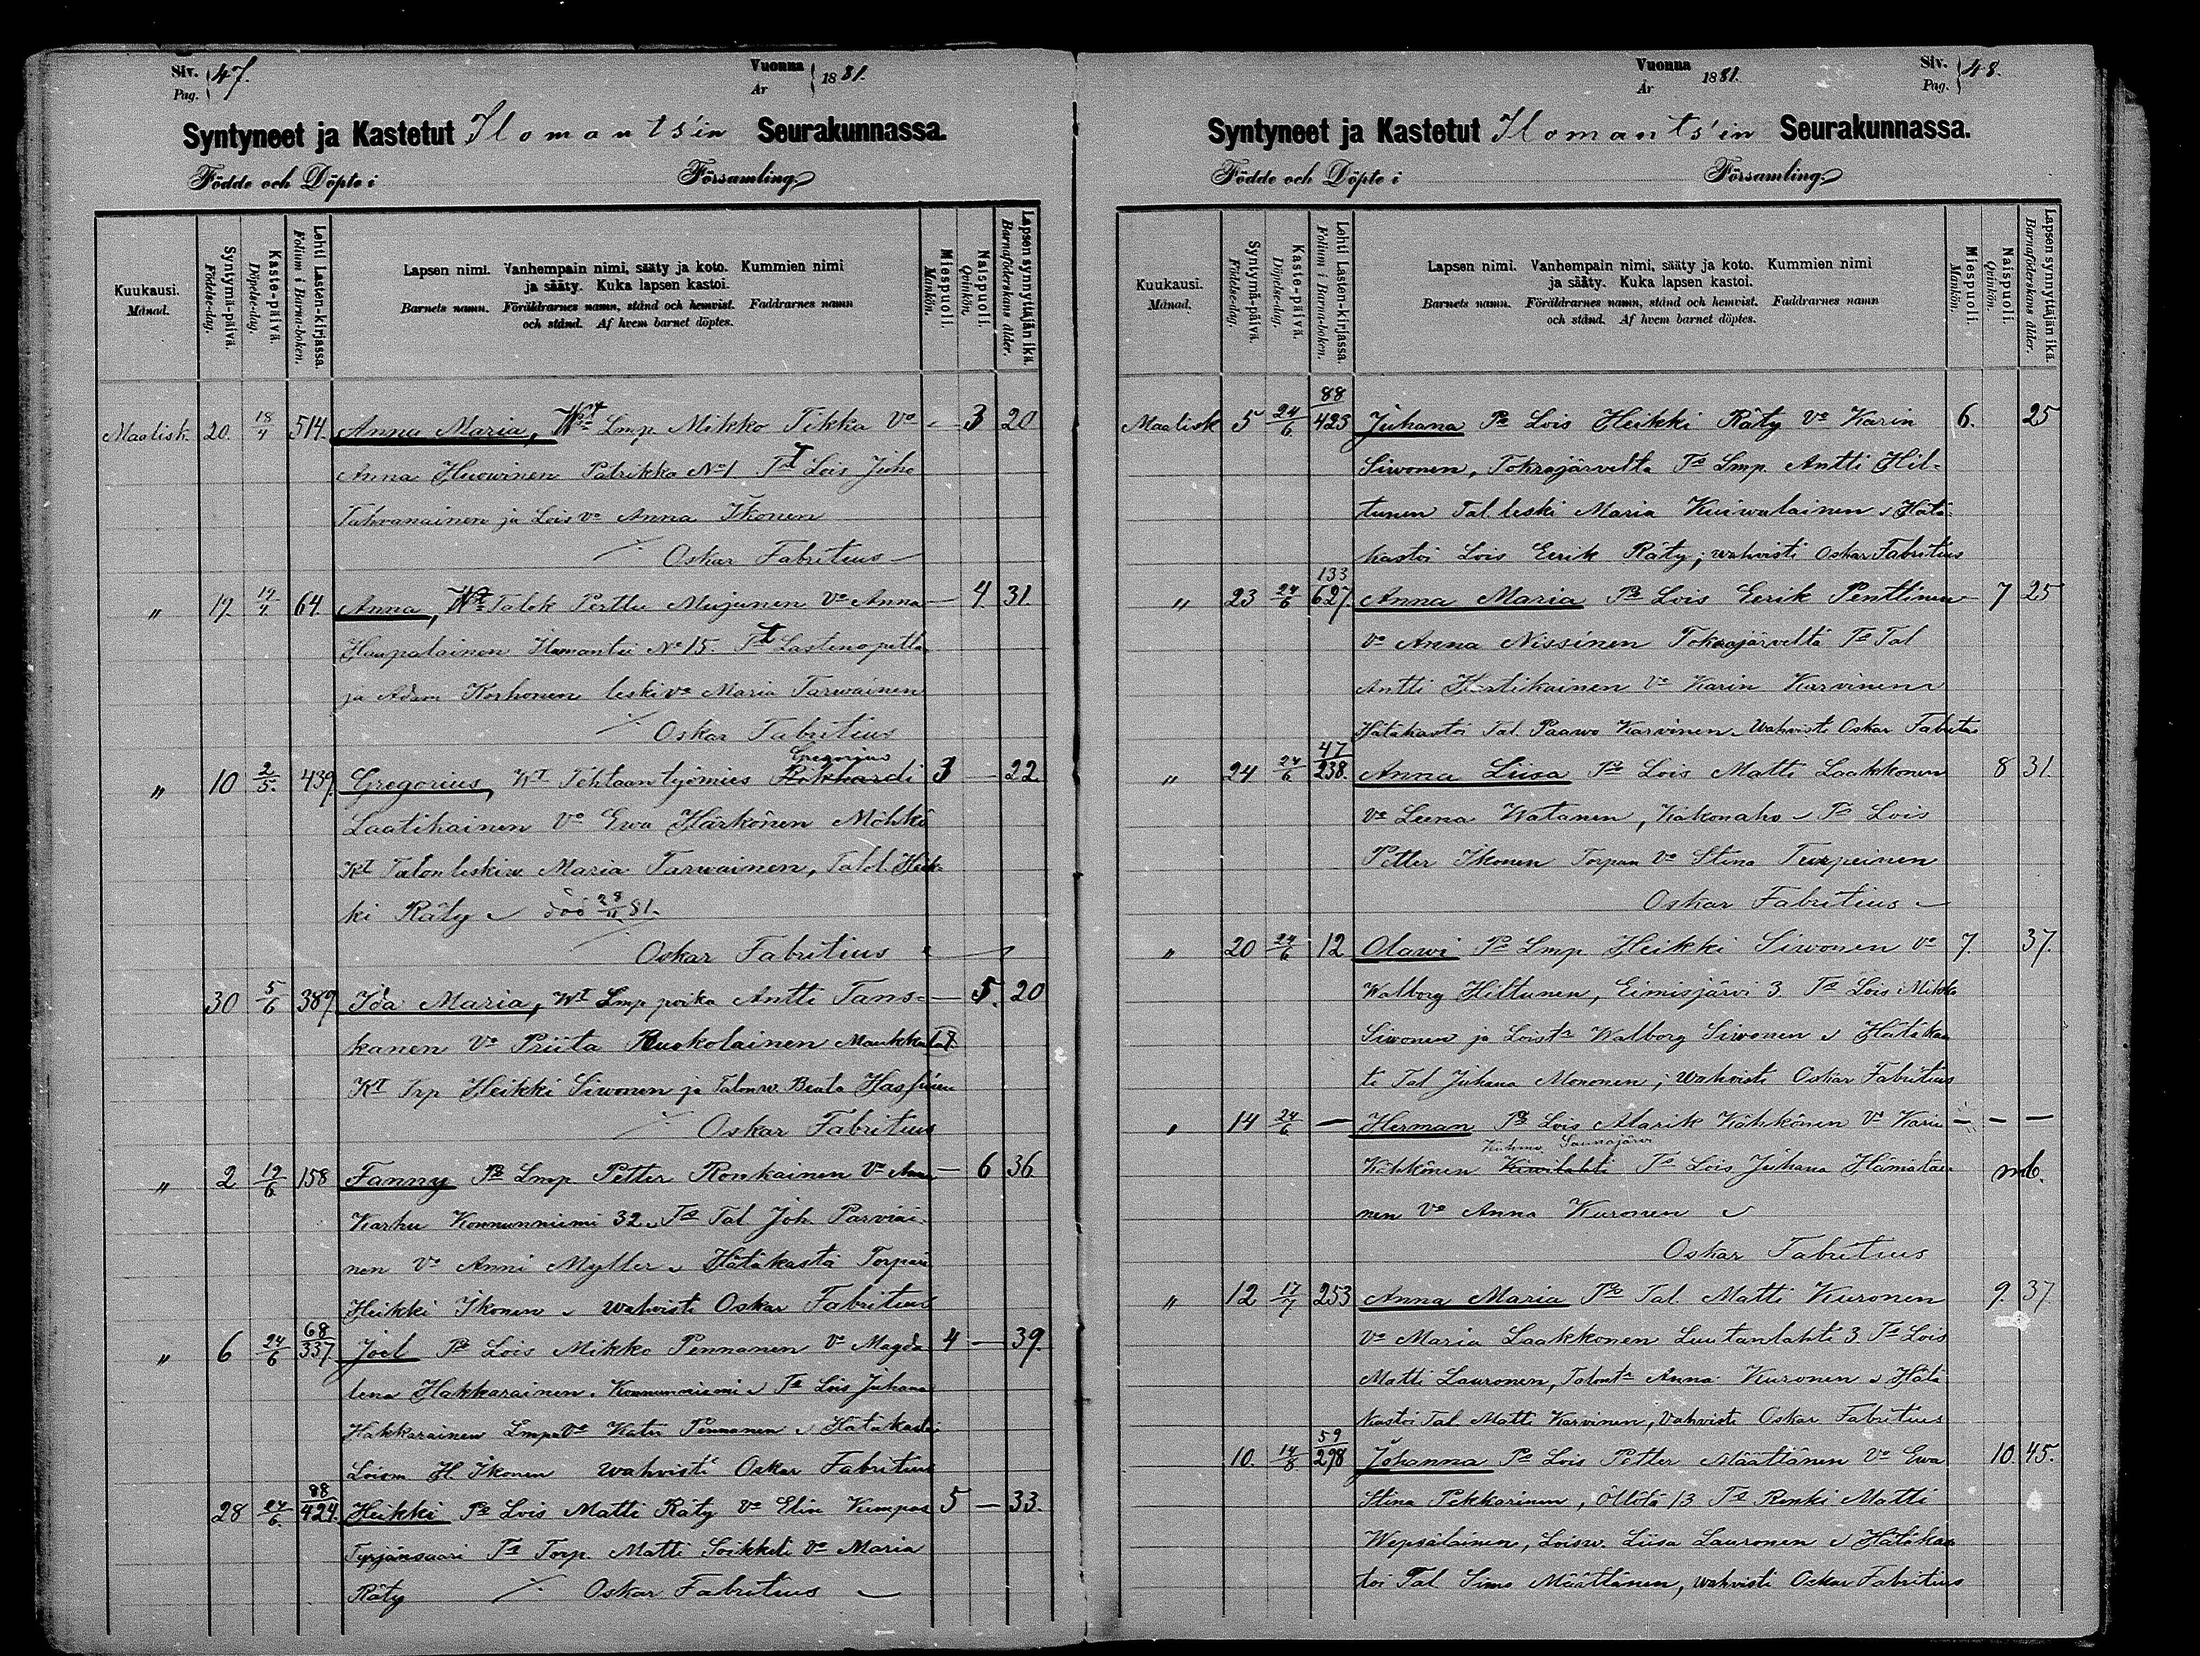 Siv. Pag. 47.
Vuonna År 1881.
Syntyneet ja Kastetut Ilomants'in Seurakunnassa.
Födde och Döpte i Församling
Kuukausi. Månad.
Syntymä-päivä. Födelse-dag.
Kaste-päivä. Döpelse-dag.
Lehti Lasten-kirjassa. Folium i Barna-boken.
Lapsen nimi. Vanhempain nimi, sääty ja koto. Kummien nimi
ja sääty. Kuka lapsen kastoi.
Barnets namn. Föräldrarnes namn, stånd och hemvist. Faddrarnes namn
och stånd. Af hvem barnet döptes.
Miespuoli. Mankön.
Naispuoli. Qvinkön.
Lapsen synnyttäjän ikä. Barnaföderskans ålder.
Maalisk. 20. 18/4 514. Anna Maria, Lmp. Mikko Tikka Vo - 3 20
Anna Huowinen Patrikka No 1 Tt Lois Juho
Tahvanainen ja Lois vo Anna Ikonen
Oskar Fabritius
" 17. 19/4 64. Anna, Talok Perttu Mujunen Vo Anna - 4. 31.
Haapalainen Ilomantsi No 15. Tt Lastenopetta
ja Adam Korhonen leski vo Maria Tarwainen
Oskar Fabritius
Gregorius
" 10 2/5. 439. Gregorius, Wt Tehtaantyömies 3 - 22.
Laatikainen Vo Ewa Härkönen Möhkö
Kt Talon leskiw. Maria Tarwainen, Talol. Heik-
ki Räty döö 29/11 81.
Oskar Fabritius
30 5/6 389. Ida Maria, Wt Lmp poika Antti Tans- - 5. 20
kanen Vo Priita Ruokolainen
Kt Trp Heikki Siwonen ja Talonw. Beata Hassinen
Oskar Fabritius
" 2 19/6 158 Fanny Ps Lmp. Petter Ronkainen Vo Anna - 6 36
Karhu Konnunniemi 32. Ts Tal Joh. Parviai-
nen Vo Anni Myller Hätäkasta Torpari
Heikki Ikonen wahvisti Oskar Fabritius
" 6 24/6 68/337. Joel Ps Lois Mikko Pennanen Vo Magda 4 - 39.
lena Hakkarainen. Konnunniemi Ts Lois Juhana
Hakkarainen Lmp Vo Katri Pennanen Hätäkastoi
Loism H. Ikonen wahvisti Oskar Fabritius
28 24/6. 88/424. Heikki Ps Lois Matti Räty Vo Elin Kumpas 5 - 33.
Tyrjänsaari Ts Torp. Matti Soikkeli Vo Maria
Räty Oskar Fabritius
Vuonna År 1881.
Siv. Pag. 48.
Syntyneet ja Kastetut Ilomants'in Seurakunnassa.
Födde och Döpte i Församling
Kuukausi. Månad.
Syntymä-päivä. Födelse-dag.
Kaste-päivä. Döpelse-dag.
Lehti Lasten-kirjassa. Folium i Barna-boken.
Lapsen nimi. Vanhempain nimi, sääty ja koto. Kummien nimi
ja sääty. Kuka lapsen kastoi.
Barnets namn. Föräldrarnes namn, stånd och hemvist. Faddrarnes namn
och stånd. Af hvem barnet döptes.
Miespuoli. Mankön.
Naispuoli. Qvinkön.
Lapsen synnyttäjän ikä. Barnaföderskans ålder.
Maalisk 5 24/6. 88/423 Juhana Ps Lois Heikki Räty Vo Karin 6. 25
Siwonen, Tokrajärveltä Ts Lmp. Antti Hil-
tunen Tal. leski Maria Kuiwalainen Hätä-
kastoi Lois Eerik Räty; wahvisti Oskar Fabritius
" 23 24/6 133/627. Anna Maria Ps Lois Eerik Penttinen 7 25
Vo Anna Nissinen Tokrajärveltä Ts Tal
Antti Hartikainen Vo Karin Karvinen
Hätäkastoi Tal. Paawo Karvinen. Wahvisti Oskar Fabritius
" 24 24/6 47/238. Anna Liisa Ps Lois Matti Laakkonen 8 31.
Vo Leena Watanen, Kakonaho Ts Lois
Petter Ikonen Torpan Vo Stina Turpeinen
Oskar Fabritius
" 20 24/6 12 Olawi Ps Lmp. Heikki Siwonen Vo 7. 37.
Walborg Hiltunen, Eimisjärvi 3. Ts Lois Mikko
Siwonen ja Loist. Walborg Siwonen Hätäkas
ti Tal Juhana Mononen; wahvisti Oskar Fabritius
" 14 24/6 - Herman Ps Lois Alarik Kähkönen Vo Karin - - -
Kuhmo Saunajärvi
Kähkönen Kiwilahti Ts Lois Juhana Hämäläi- mb.
nen Vo Anna Kuronen
Oskar Fabritius
" 12 17/7 253 Anna Maria Ps Tal. Matti Kuronen 9. 37.
Vo Maria Laakkonen Luutanlahti 3. Ts Lois
Matti Lauronen, Talont. Anna Kuronen Hätä
kastoi Tal. Matti Karvinen, Vahvisti Oskar Fabritius
10. 14/8. 59/278 Johanna Ps Lois Petter Määttänen Vo Ewa 10. 45.
Stina Pekkarinen, Öllölä 13 Ts Renki Matti
Wepsäläinen, Loisw. Liisa Lauronen Hätäkas
toi Tal. Simo Määttänen, wahvisti Oskar Fabritius